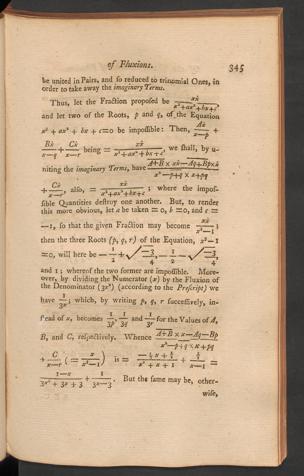 of Fluxions. 345
be united in Pairs, and so reduced to trinomial Ones, in
order to take away the imaginary Terms.
Thus, let the Fraction proposed be xẋ / x³+ax²+bx+c,
and let two of the Roots, p and q, of the Equation
x³ + ax² + bx + c=0 be impossible: Then, Aẋ / x—p +
Bẋ / x—q + Cẋ / x—r being = xẋ / x³+ax²+bx+c, we shall, by u-
niting the imaginary Terms, have A+B × xẋ—Aq+Bp×ẋ / x²—p+q × x+pq
+ Cẋ / x—r, also, = xẋ / x³+ax²+bx+c; where the impos-
sible Quantities destroy one another. But, to render
this more obvious, let a be taken = 0, b =0, and c =
—1, so that the given Fraction may become xẋ / x³—1;
then the three Roots (p, q, r) of the Equation, x³—1
=0, will here be — 1/2 + √—3/4, — 1/2 — √—3/4,
and 1; whereof the two former are impossible. More-
over, by dividing the Numerator (x) by the Fluxion of
the Denominator (3x²) (according to the Prescript) we
have 1/3x; which, by writing p, q, r successively, in-
stead of x, becomes 1/3p, 1/3q and 1/3r for the Values of A,
B, and C, respectively. Whence A+B × x—Aq—Bp / x²—p+q × x+pq
+ C / x—r (= x / x³—1) is = —⅓x+⅓ / x² + x + 1 + ⅓ / x—1 =
1—x / 3x² + 3x + 3 + 1 / 3x—3. But the same may be, other-
wise,